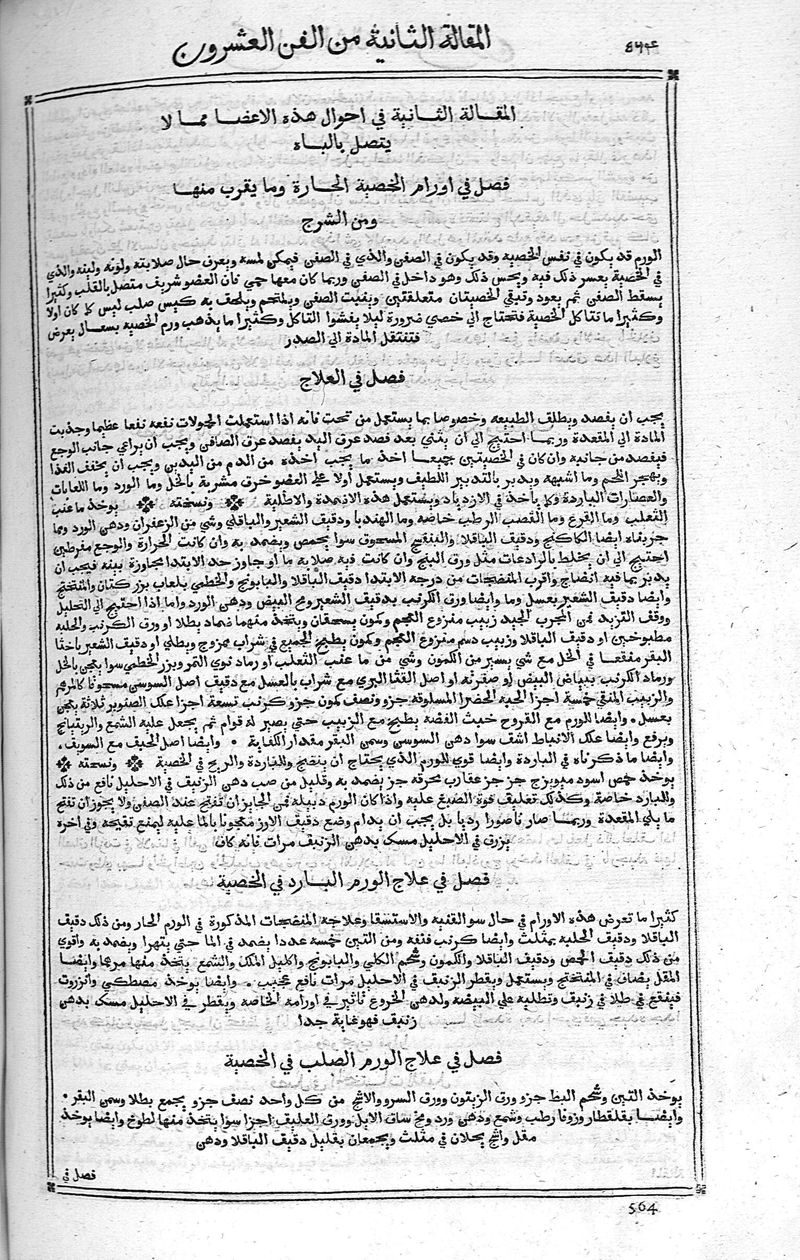 المقالة الثانية من الفن العشرون
المقالة الثانية في احوال هذه الاعضا مما لا
يتصل بالباه
فصل في اورام الخصية الحارة وما يقرب منها
ومن الشرج
الورم قد يكون في نفس الخصيه وقد يكون في الصفن والذي في الصفن فيمكن لمسه ويعرف حال صلابته ولونه ولينه والذي
في الخصية يعسر ذلك فيه ويحس ذلك وهو داخل في الصفن وربما كان معها حمي فان العضو شريف متصل بالقلب وكثيرا
يسقط الصفن ثم يعود وتبقي الخصيتان متعلقتين وينبت الصفن ويلتحم ويلحف به كيس صلب ليس كما كان اولا
وكثيرا ما تتاكل الخصية فتحتاج الي خصي ضرورة ليلا يفشوا التاكل وكثيرا ما يذهب ورم الخصية بسعال يعرض
فتنتقل المادة الي الصدر
فصل في العلاج
يجب ان يفصد ويطلق الطبيعه وخصوصا بما يستعمل من تحت فانه اذا استعملت الحمولات نفعه نفعا عظيما وجذبت
المادة الي المقعدة وربما احتيج الي ان يثني بعد فصد عرق اليد بفصد عرق الصافن ويجب ان يراعي جانب الوجع
فيفصد من جانبه وان كان في الخصيتين جميعا اخذ ما يجب اخذه من الدم من اليدين ويجب ان يخفف الغذا
ويهجر اللحم وما اشبهه ويدبر بالتدبير اللطيف ويستعمل اولا علي العضو خرق مشربة بالخل وما الورد وما اللعابات
والعصارات الباردة وكما ياخذ في الازدياد ويستعمل هذه الاضمدة والاطلية ونسخته يوخذ ما عنب
الثعلب وما القرع وما القصب الرطب خاصه وما الهندبا ودقيق الشعير والباقلي وشي من الزعفران ودهن الورد ومما
جربناه ايضا الكاكنج ودقيق الباقلا والبنفسج المسحوق سوا يحمص ويضمد به وان كانت الحرارة والوجع مفرطين
احتيج الي ان يختلط بالرادعات مثل ورق البنج وان كانت فيه صلابه ما او جاوز حد الابتدا مجاوزة بينه فيجب ان
يدبر بما فيه انضاج واقرب المنضجات من درجه الابتدا دقيق الباقلا والبابونج والخطمي بلعاب بزر كتان والمنفتخج
وايضا دقيق الشعير بعسل وما وايضا ورق الكرنب بدقيق الشعير ومح البيض ودهن الورد واما اذا احتيج الي التحليل
ووقف التزيد فمن المجرب الجيد زبيب منزوع العجم وكمون يسحقان ويتخذ منهما ضماد بطلا او ورق الكرنب والحلبه
مطبوخين او دقيق الباقلا وزبيب دسم منزوع العجم وكمون يطبخ الجميع في شراب ممزوج ويطلي او دقيق الشعير باخثا
البقر منقعا في الخل مع شي يسير من الكمون وشي من ما عنب الثعلب او رماد نوي التمر وبزر الخطمي سوا يعجن بالخل
ورماد الكرنب ببياض البيض او صفرته او اصل القثا البري مع شراب بالعسل مع دقيق اصل السوسن مسحوقا كالمرهم
والزبيب المنقي خمسة اجزا الحبه الخضرا المسلوقه جزو ونصف كمون جزو كرنب تسعة اجزا علك الصنوبر ثلاثة يعجن
بعسل وايضا للورم مع القروح خبث الفضه يطبخ مع الزبيب حتي يصير له قوام ثم يجعل عليه الشمع والريتيانج
ويرفع وايضا علك الانباط اشف سوا دهن السوسن وسمن البقر مقدار الكفاية وايضا اصل الخيف مع السويف
وايضا ما ذكرناه في الباردة وايضا قوي للورم الذي يحتاج ان ينضج وللباردة والريح في الخصية ونسخته
يوخذ حمص اسود ميويزج جز جز عقارب محرقه جز يضمد به وقليل من صب دهن الزنبق في الاحليل نافع من ذلك
وللبارد خاصة وكذلك تعليق فوة الصبغ عليه واذا كان الورم دبيله فمن الجايز ان تفتح عند الصفن ولا يجوز ان تفتح
ما يلي المقعدة وربما صار ناصورا رديا بل يجب ان يدام وضع دقيق الارز معجونا بالما عليه ليمنع تقيحه وفي اخره
يزرق في الاحليل مسك بدهن الزنبق مرات فانه كان
فصل في علاج الورم البارد في الخصية
كثيرا ما تعرض هذه الاورام في حال سو القنيه والاستسقا وعلاجه المنضجات المذكورة في الورم الحار ومن ذلك دقيق
الباقلا ودقيق الحلبه بمثلث وايضا كرنب فيفه ومن التين خمسة عددا يضمد في الما حتي يتهرا ويضمد به واقوي
من ذلك دقيق الحمص ودقيق الباقلا والكمون وشحم الكلي والبابونج واكليل الملك والشمع يتخذ منها مرهما وايضا
المقل يضاف في المنفتخج ويستعمل ويقطر الزنبق في الاحليل مرات نافع عجيب وايضا يوخذ مصطكي وانزروت
فينقع في طلا في زنبق وتطليه علي البيضه ولدهن الخروع تاثير في اورامه الخاصه ويقطر في الاحليل مسك بدهن
زنبق فهو غاية جدا
فصل في علاج الورم الصلب في الخصية
يوخذ التين وشحم البط جزو ورق الزيتون وورق السرو والاشج من كل واحد نصف جزو يجمع بطلا وسمن البقر
وايضا بقلقطار وزوفا رطب وشمع ودهن ورد ومخ ساق الايل وورق العليق اجزا سوا يتخذ منها لطوخ وايضا يوخذ
مقل واشج يحلان في مثلث ويجمعان بقليل دقيق الباقلا ودهن
فصل في
564